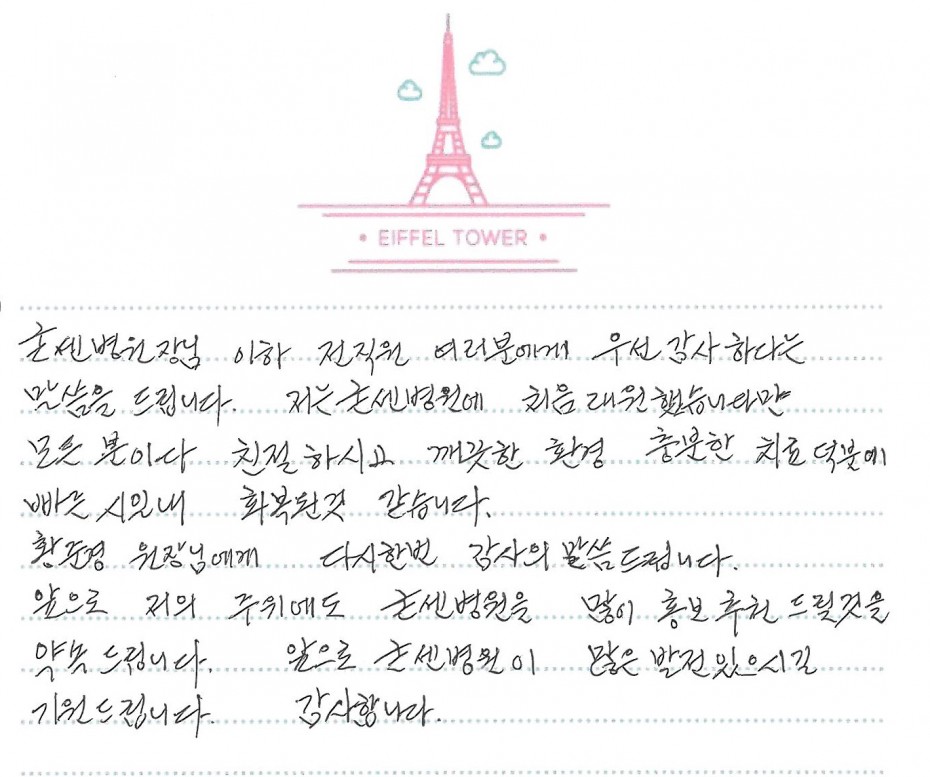 • EIFFEL TOWER •
굳센병원장님 이하 전직원 여러분에게 우선 감사하다는
말씀을 드립니다. 저는 굳센병원에 처음 내원했습니다만
모든 분이다 친절하시고 깨끗한 환경 충분한 치료 덕분에
빠른 시일내 회복된것 같습니다.
황준경 원장님에게 다시한번 감사의 말씀드립니다.
앞으로 저의 주위에도 굳센병원을 많이 홍보 추천 드릴것을
약속 드립니다. 앞으로 굳센병원이 많은 발전있으시길
기원드립니다. 감사합니다.